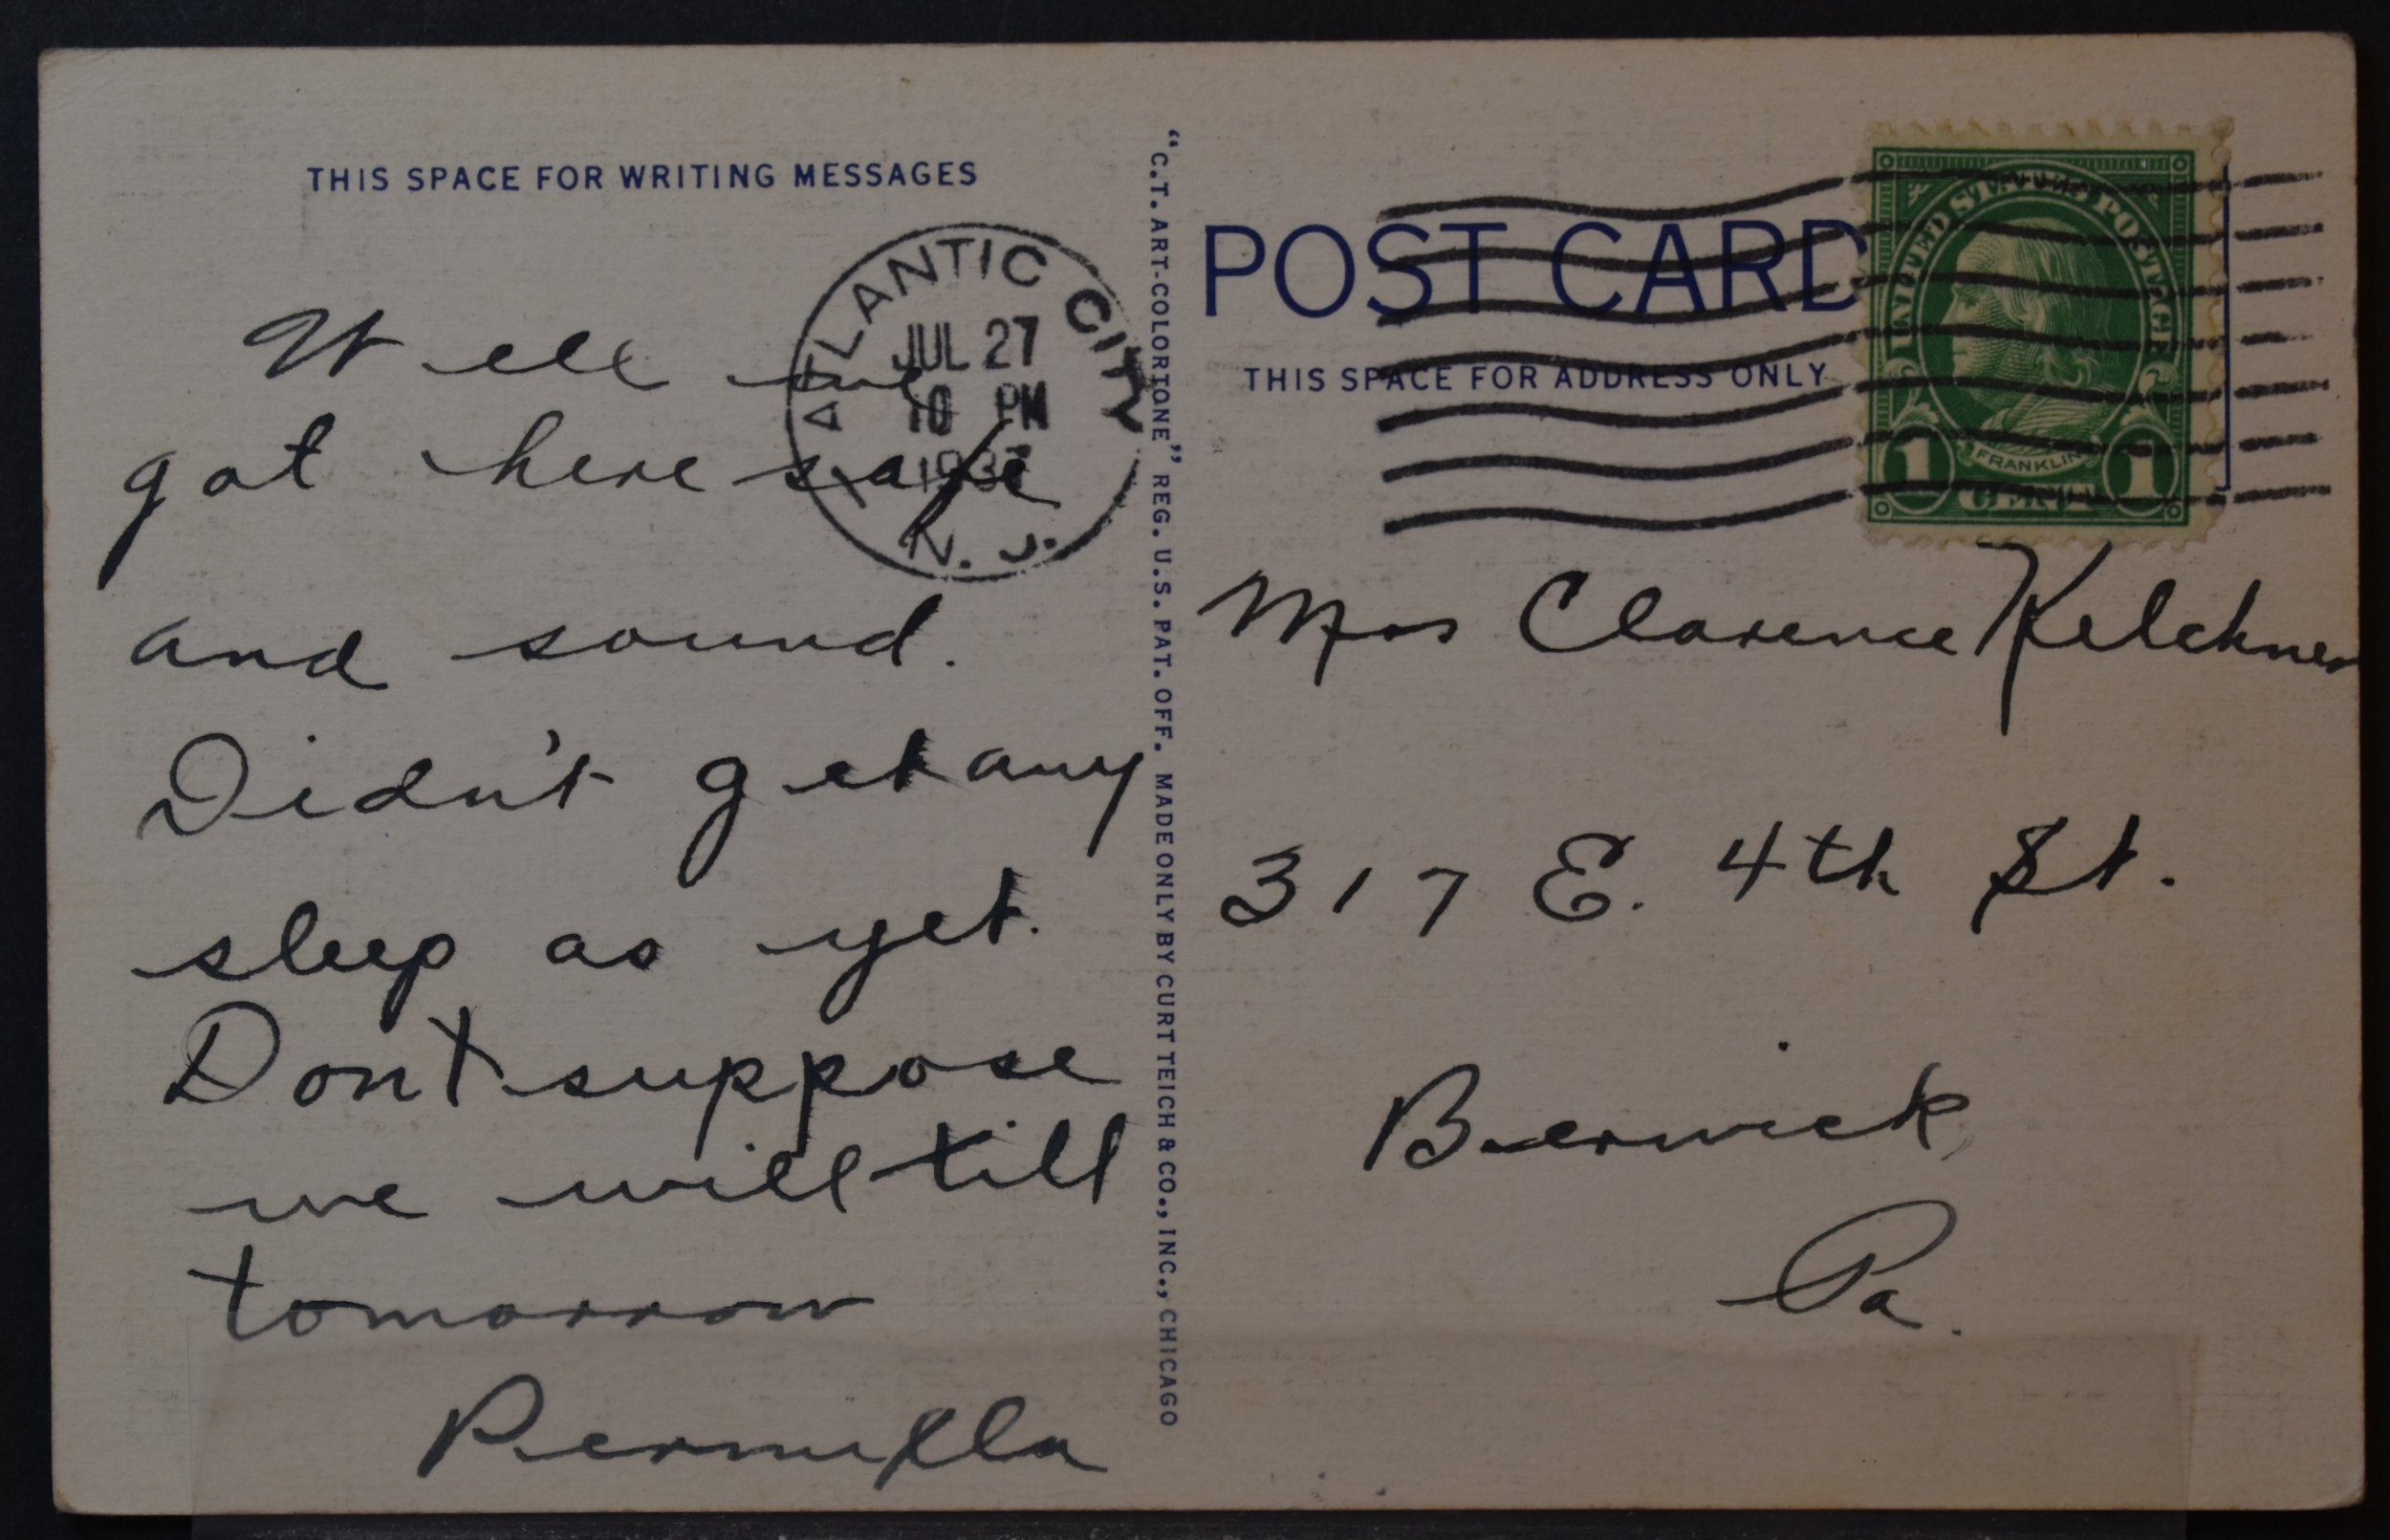 THIS SPACE FOR WRITING MESSAGES
Well we
got here safe
and sound.
Didn't get any
sleep as yet.
Dont suppose
we will till
tomorrow
ATLANTIC CITY
JUL 27
10 PM
1937
N. J.
"C.T. ART-COLORTONE" REG. U.S. PAT. OFF. MADE ONLY BY CURT TEICH & CO., INC., CHICAGO
POST CARD
THIS SPACE FOR ADDRESS ONLY
UNITED STATES POSTAGE
FRANKLIN
1 CENT 1
Mrs Clarence Kelchner
317 E. 4th St.
Berwick
Pa.